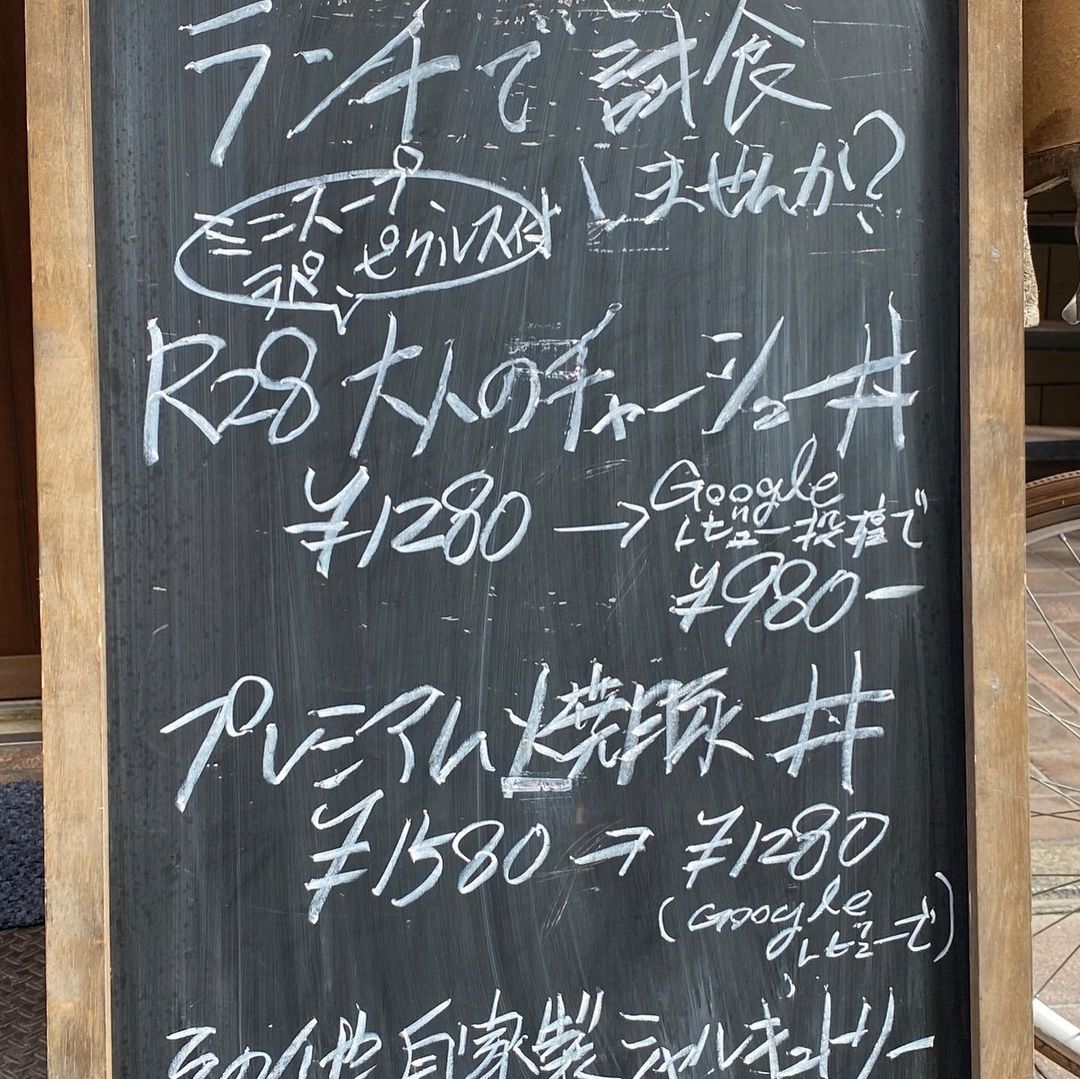 ランチで試食
しませんか?
ミニスープ
ラペ ピクルス付
R28 大人のチャーシュー丼
¥1280 → Google
レビュー投稿で
¥980-
プレミアム焼豚丼
¥1580 → ¥1280
(Google
レビューで)
その他自家製シャルキュトリー